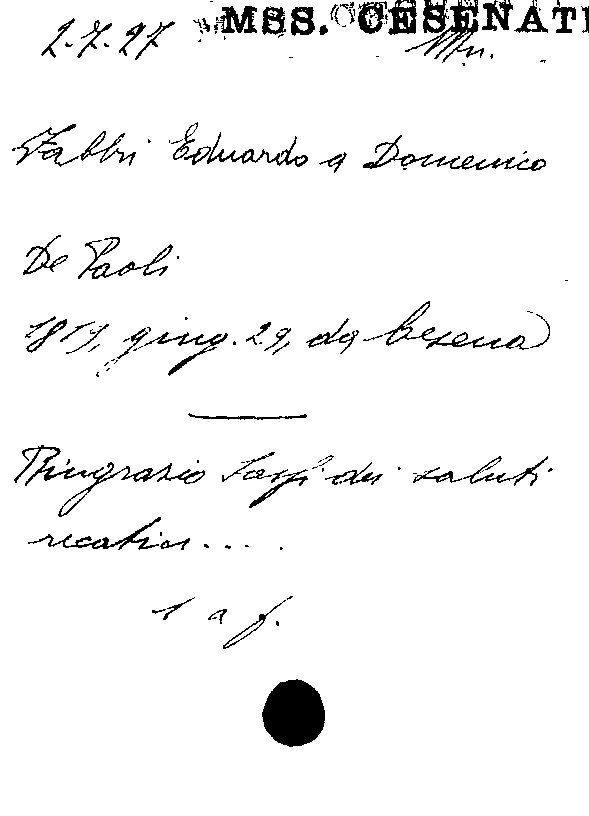 MSS. CESENATI
2.7.27 Mn.
Fabbri Eduardo a Domenico
De Paoli
1819, giug. 29, da Cesena
Ringrazio Sassi dei saluti
recatior....
1 a f.